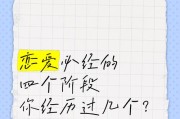 恋爱必经的
四个阶段
你经历过几个？